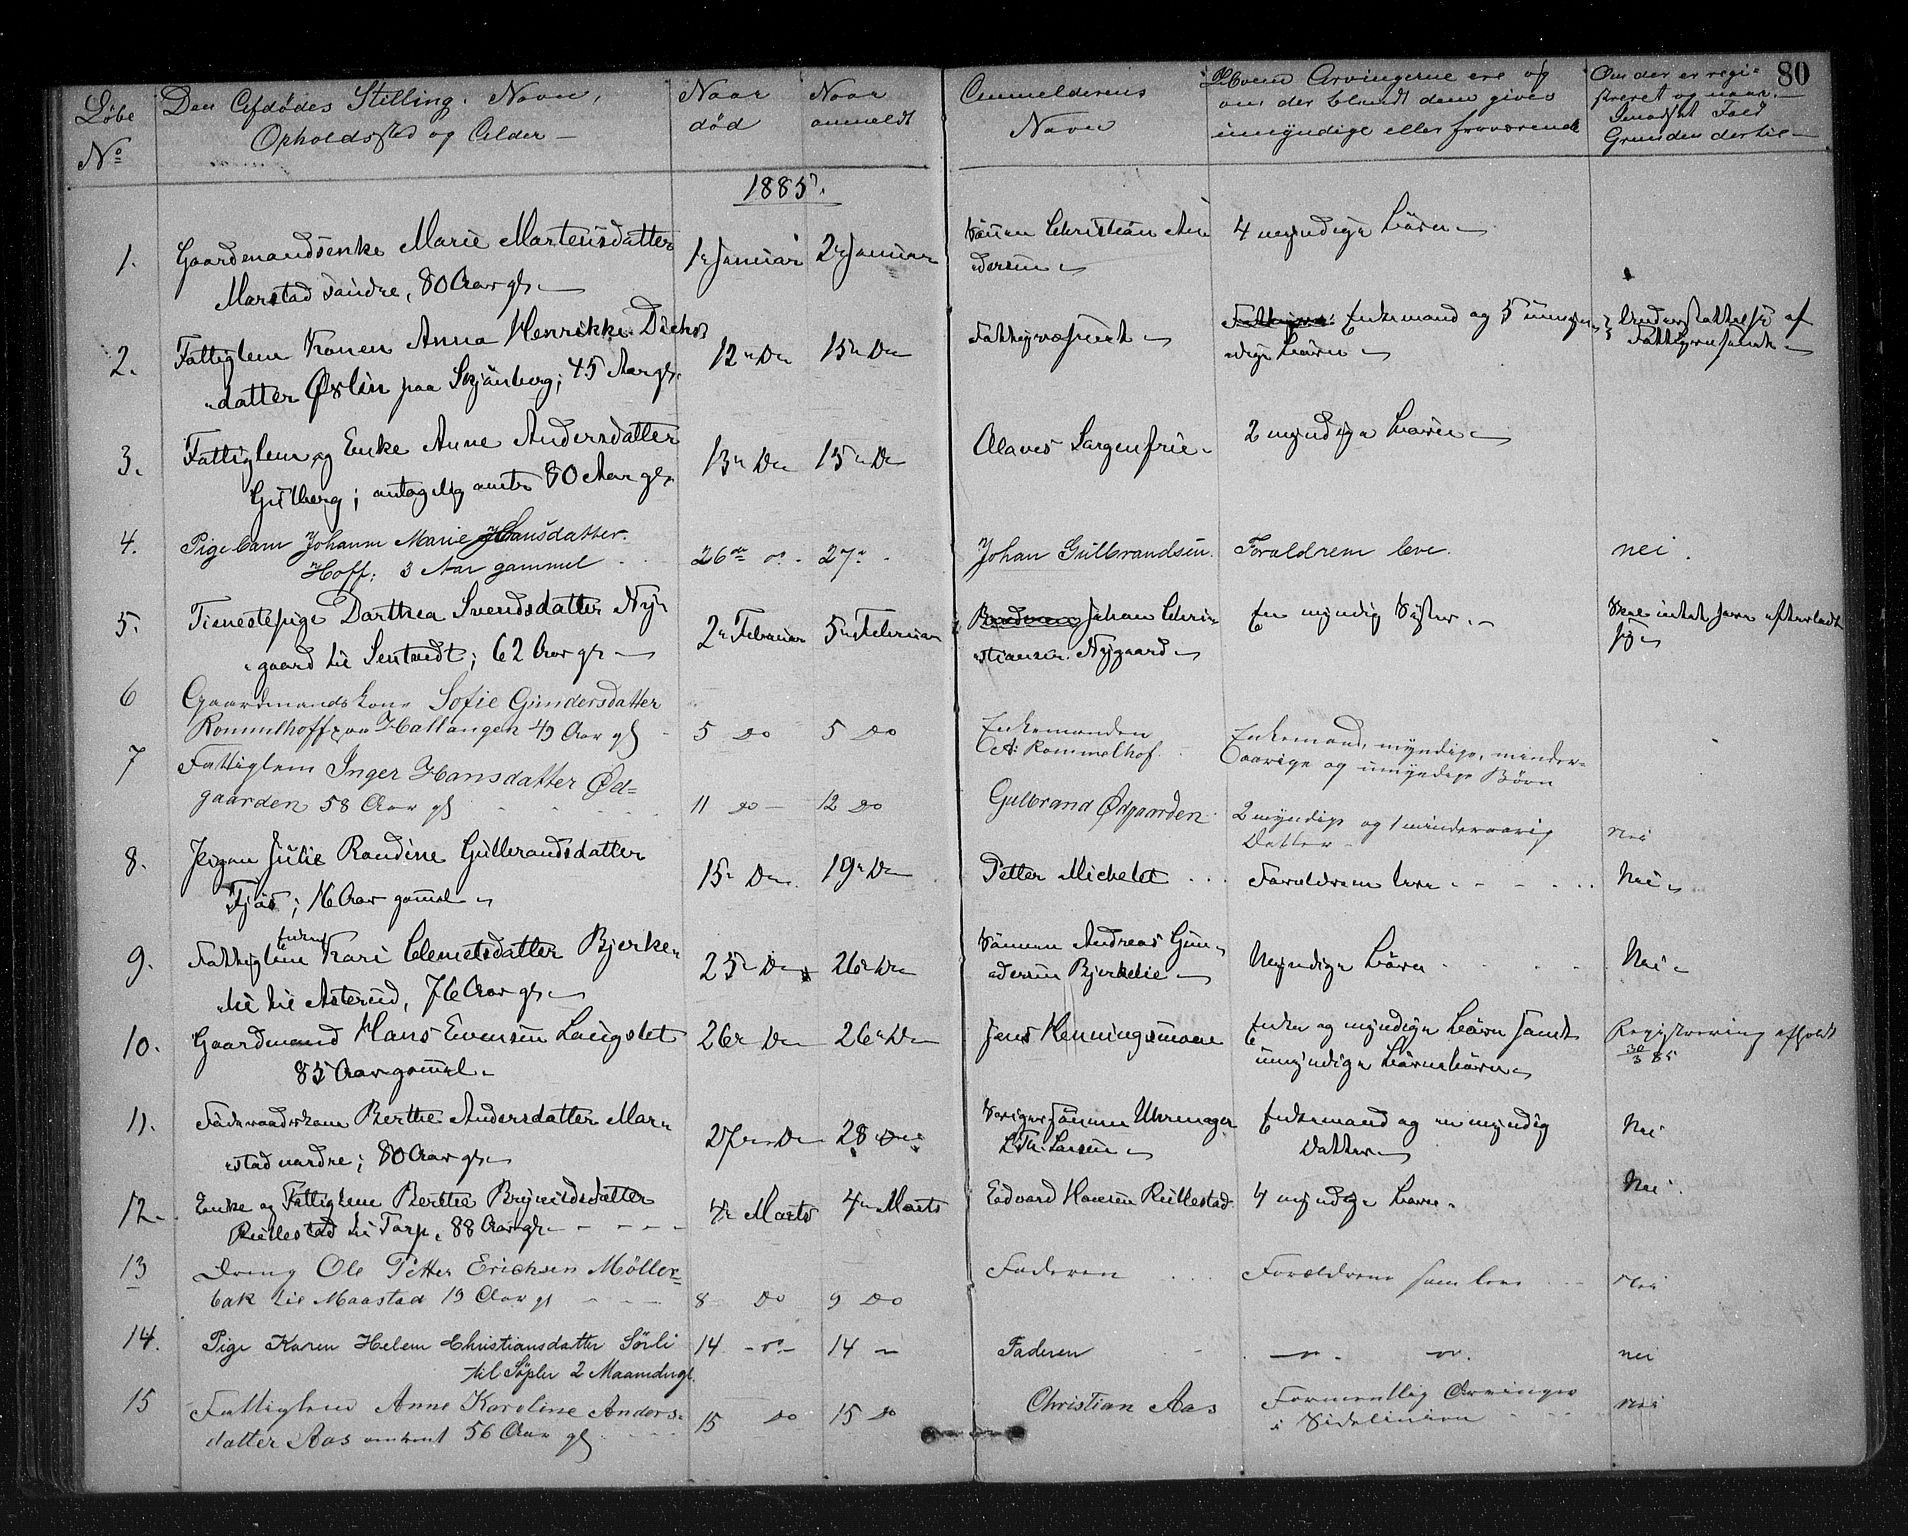 80
Løbe No
Den Afdødes Stilling, Navn,
Opholdssted og Alder
Naar
død
Naar
anmeldt
Anmelderens
Navn
Hvem Arvingerne ere og
om der blandt dem gives
umyndige eller fraværende
Om der er regi-
streret og naar.
I modsat Fald
Grunden dertil
1885.
1. Gaardmandsenke Marie Martensdatter
Marstad søndre, 80 Aar gl.
1r Januar 2r Januar
Sønnen Christian An
dersen
4 myndige børn
2. Fattiglem Konen Anna Henrikke Dichs
datter Øxlin paa Skjønberg; 45 Aar gl.
12r Do 15r Do
Fattigvæsenet
Enkemand og 5 umyn
dige børn
Understøttelse af
Fattigvæsenet
3. Fattiglem og Enke Anne Andersdatter
Gulberg; antagelig omtr 80 Aar gl.
13r Do 15r Do
Olaves Sorgenfrie
2 myndige børn
4. Pigebarn Johanne Marie Hansdatter
Hoff; 3 Aar gammel
26de do. 27r
Johan Gulbrandsen
Foraldrene leve.
nei.
5. Tjenestepige Dorthea Svendsdatter Ny
gaard til Sentandt; 62 Aar gl.
2r Februar 5r Februar
Johan Chri
stiansen Nygaard
En myndig Syster
Skal intet have efterladt
sig
6 Gaardmandskone Sofie Gundersdatter
Rommelhoff paa Hallangen 49 Aar gl
5 Do 5 Do
Enkemanden
A: Rommelhof.
Enkemand, myndige, minder-
aarige og umyndige Børn
7 Fattiglem Inger Hansdatter Ød=
gaarden 58 Aar gl
11 Do 12 Do
Gulbrand Ødgaarden
2 myndige og 1 mindreaarig
Datter
nei
8. Pigen Julie Randine Gulbrandsdatter
Tjøs; 16 Aar gammel
15r Do 19r Do
Petter Michelet
Forældrene leve
Nei
9. Fattiglem Enke Kari Clemetsdatter Bjerke
lie til Asterud, 76 Aar gl.
25r Do 26r Do
Sønnen Andreas Gun
dersen Bjerkelie
Myndige børn
Nei
10. Gaardmand Hans Evensen Laugslet
85 Aar gammel
26r Do 26r Do
Jens Henningsmoen
Enke og myndige børn samt
umyndige børnebørn
Registrering afholdt
30/3 85
11. Føderaadskone Berthe Andersdatter Mar
stad nordre; 80 Aar gl.
27r Do 28 Do
Svigersønnen Uhrmager
L. Th. Larsen
Enkemand og en myndig
Datter
Nei
12. Enke og Fattiglem Berthe Brynildsdatter
Rullestad til Tarp, 88 Aar gl.
4r Marts 4r Marts
Edvard Hansen Rullestad
4 myndige børn
Nei.
13 Dreng Ole Petter Erichsen Møller=
bak til Maastad 13 Aar gl
8 Do 9 Do
Faderen
Forældrene som leve
Nei
14. Pige Karen Helene Christiansdatter Sørli
til Søpler 2 Maaneder gl.
14 do 14
Faderen
nei
15 Fattiglem Anne Karoline Anders=
datter Aas omtrent 56 Aar gl
15 Do 15 Do
Christian Aas
Formentlig Arvinger
i Sidelinien
nei